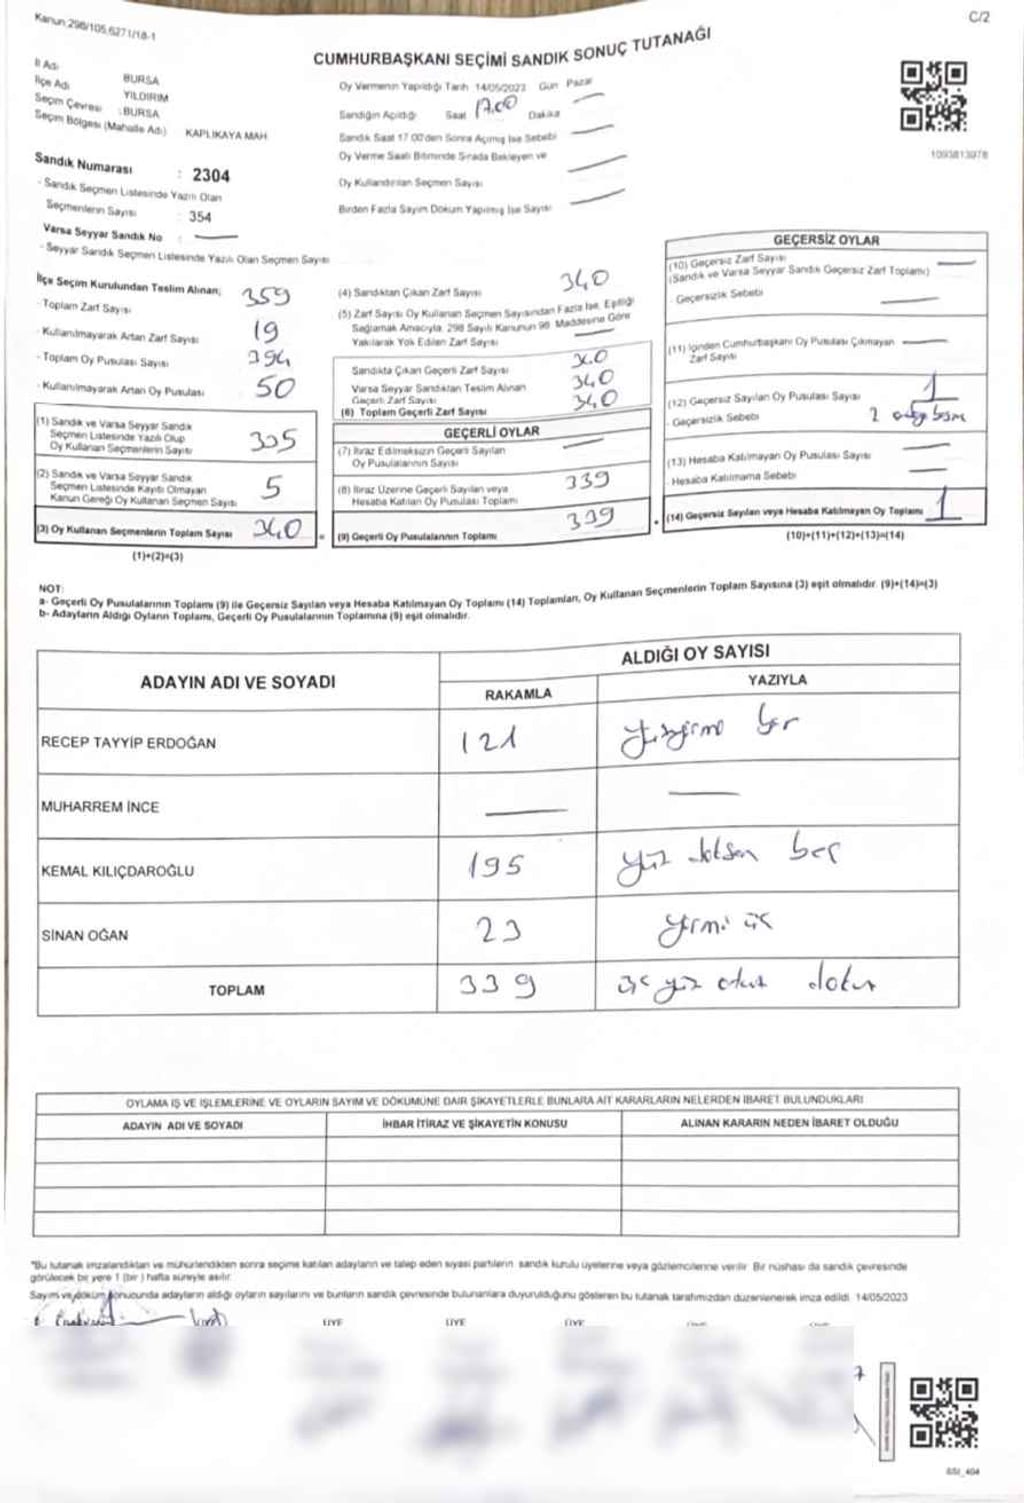 Kanun:298/105,6271/18-1
C/2
CUMHURBAŞKANI SEÇİMİ SANDIK SONUÇ TUTANAĞI
İl Adı
BURSA
İlçe Adı
YILDIRIM
Seçim Çevresi : BURSA
Seçim Bölgesi (Mahalle Adı) KAPLIKAYA MAH
Sandık Numarası : 2304
- Sandık Seçmen Listesinde Yazılı Olan
Seçmenlerin Sayısı : 354
Varsa Seyyar Sandık No :
- Seyyar Sandık Seçmen Listesinde Yazılı Olan Seçmen Sayısı
Oy Vermenin Yapıldığı Tarih 14/05/2023 Gün Pazar
Sandığın Açıldığı Saat 17.00 Dakika
Sandık Saat 17 00'den Sonra Açılmış İse Sebebi
Oy Verme Saati Bitiminde Sırada Bekleyen ve
Oy Kullandırılan Seçmen Sayısı
Birden Fazla Sayım Döküm Yapılmış İse Sayısı
1093813978
İlçe Seçim Kurulundan Teslim Alınan;
- Toplam Zarf Sayısı 359
- Kullanılmayarak Artan Zarf Sayısı 19
- Toplam Oy Pusulası Sayısı 394
- Kullanılmayarak Artan Oy Pusulası 50
(1) Sandık ve Varsa Seyyar Sandık
Seçmen Listesinde Yazılı Olup
Oy Kullanan Seçmenlerin Sayısı 335
(2) Sandık ve Varsa Seyyar Sandık
Seçmen Listesinde Kayıtlı Olmayan
Kanun Gereği Oy Kullanan Seçmen Sayısı 5
(3) Oy Kullanan Seçmenlerin Toplam Sayısı 340
(1)+(2)=(3)
(4) Sandıktan Çıkan Zarf Sayısı 340
(5) Zarf Sayısı Oy Kullanan Seçmen Sayısından Fazla İse, Eşitliği
Sağlamak Amacıyla, 298 Sayılı Kanunun 98. Maddesine Göre
Yakılarak Yok Edilen Zarf Sayısı
Sandıkta Çıkan Geçerli Zarf Sayısı 340
Varsa Seyyar Sandıktan Teslim Alınan
Geçerli Zarf Sayısı 340
(6) Toplam Geçerli Zarf Sayısı 340
GEÇERLİ OYLAR
(7) İtiraz Edilmeksizin Geçerli Sayılan
Oy Pusulalarının Sayısı
(8) İtiraz Üzerine Geçerli Sayılan veya
Hesaba Katılan Oy Pusulası Toplamı 339
= (9) Geçerli Oy Pusulalarının Toplamı 339
GEÇERSİZ OYLAR
(10) Geçersiz Zarf Sayısı
(Sandık ve Varsa Seyyar Sandık Geçersiz Zarf Toplamı)
- Geçersizlik Sebebi
(11) İçinden Cumhurbaşkanı Oy Pusulası Çıkmayan
Zarf Sayısı
(12) Geçersiz Sayılan Oy Pusulası Sayısı 1
- Geçersizlik Sebebi 2
(13) Hesaba Katılmayan Oy Pusulası Sayısı
- Hesaba Katılmama Sebebi
+ (14) Geçersiz Sayılan veya Hesaba Katılmayan Oy Toplamı 1
(10)+(11)+(12)+(13)=(14)
NOT:
a- Geçerli Oy Pusulalarının Toplamı (9) ile Geçersiz Sayılan veya Hesaba Katılmayan Oy Toplamı (14) Toplamları, Oy Kullanan Seçmenlerin Toplam Sayısına (3) eşit olmalıdır. (9)+(14)=(3)
b- Adayların Aldığı Oyların Toplamı, Geçerli Oy Pusulalarının Toplamına (9) eşit olmalıdır.
ADAYIN ADI VE SOYADI
ALDIĞI OY SAYISI
RAKAMLA
YAZIYLA
RECEP TAYYİP ERDOĞAN 121 yüzyirmi bir
MUHARREM İNCE
KEMAL KILIÇDAROĞLU 195 yüz doksan beş
SİNAN OĞAN 23 yirmi üç
TOPLAM 339 üç yüz otuz dokuz
OYLAMA İŞ VE İŞLEMLERİNE VE OYLARIN SAYIM VE DÖKÜMÜNE DAİR ŞİKAYETLERLE BUNLARA AİT KARARLARIN NELERDEN İBARET BULUNDUKLARI
ADAYIN ADI VE SOYADI
İHBAR İTİRAZ VE ŞİKAYETİN KONUSU
ALINAN KARARIN NEDEN İBARET OLDUĞU
*Bu tutanak imzalandıktan ve mühürlendikten sonra seçime katılan adayların ve talep eden siyasi partilerin sandık kurulu üyelerine veya gözlemcilerine verilir. Bir nüshası da sandık çevresinde
görülecek bir yere 1 (bir ) hafta süreyle asılır.
Sayım ve döküm sonucunda adayların aldığı oyların sayılarını ve bunların sandık çevresinde bulunanlara duyurulduğunu gösteren bu tutanak tarafımızdan düzenlenerek imza edildi. 14/05/2023
ÜYE ÜYE ÜYE